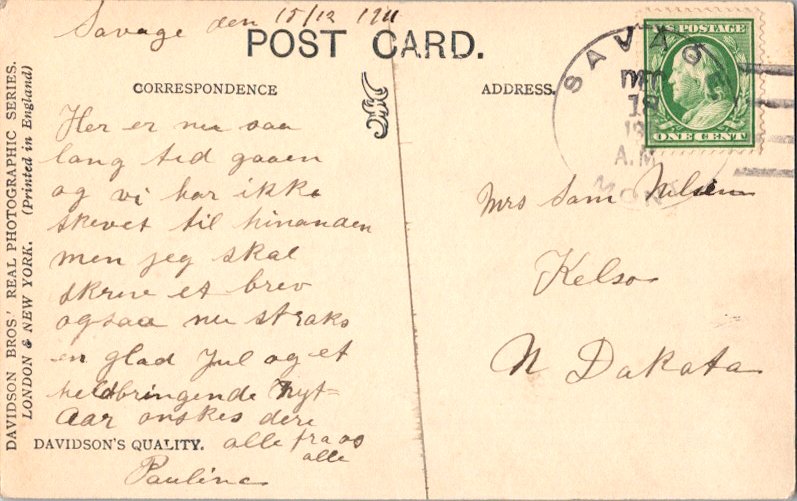 Savage den 15/12 1911
POST CARD.
CORRESPONDENCE
ADDRESS.
Her er nu saa
lang tid gaaen
og vi har ikke
skevet til hinanden
men jeg skal
skreve et brev
ogsaa nu straks
en glad Jul og et
heldbringende Nyt-
Aar onskes dere
alle fra os
alle
Pauline
DAVIDSON'S QUALITY.
DAVIDSON BROS' REAL PHOTOGRAPHIC SERIES.
LONDON & NEW YORK. (Printed in England)
SAVAG
18
A.M
MONT
U.S. POSTAGE
ONE CENT
Mrs Sam
Kelso
N Dakota